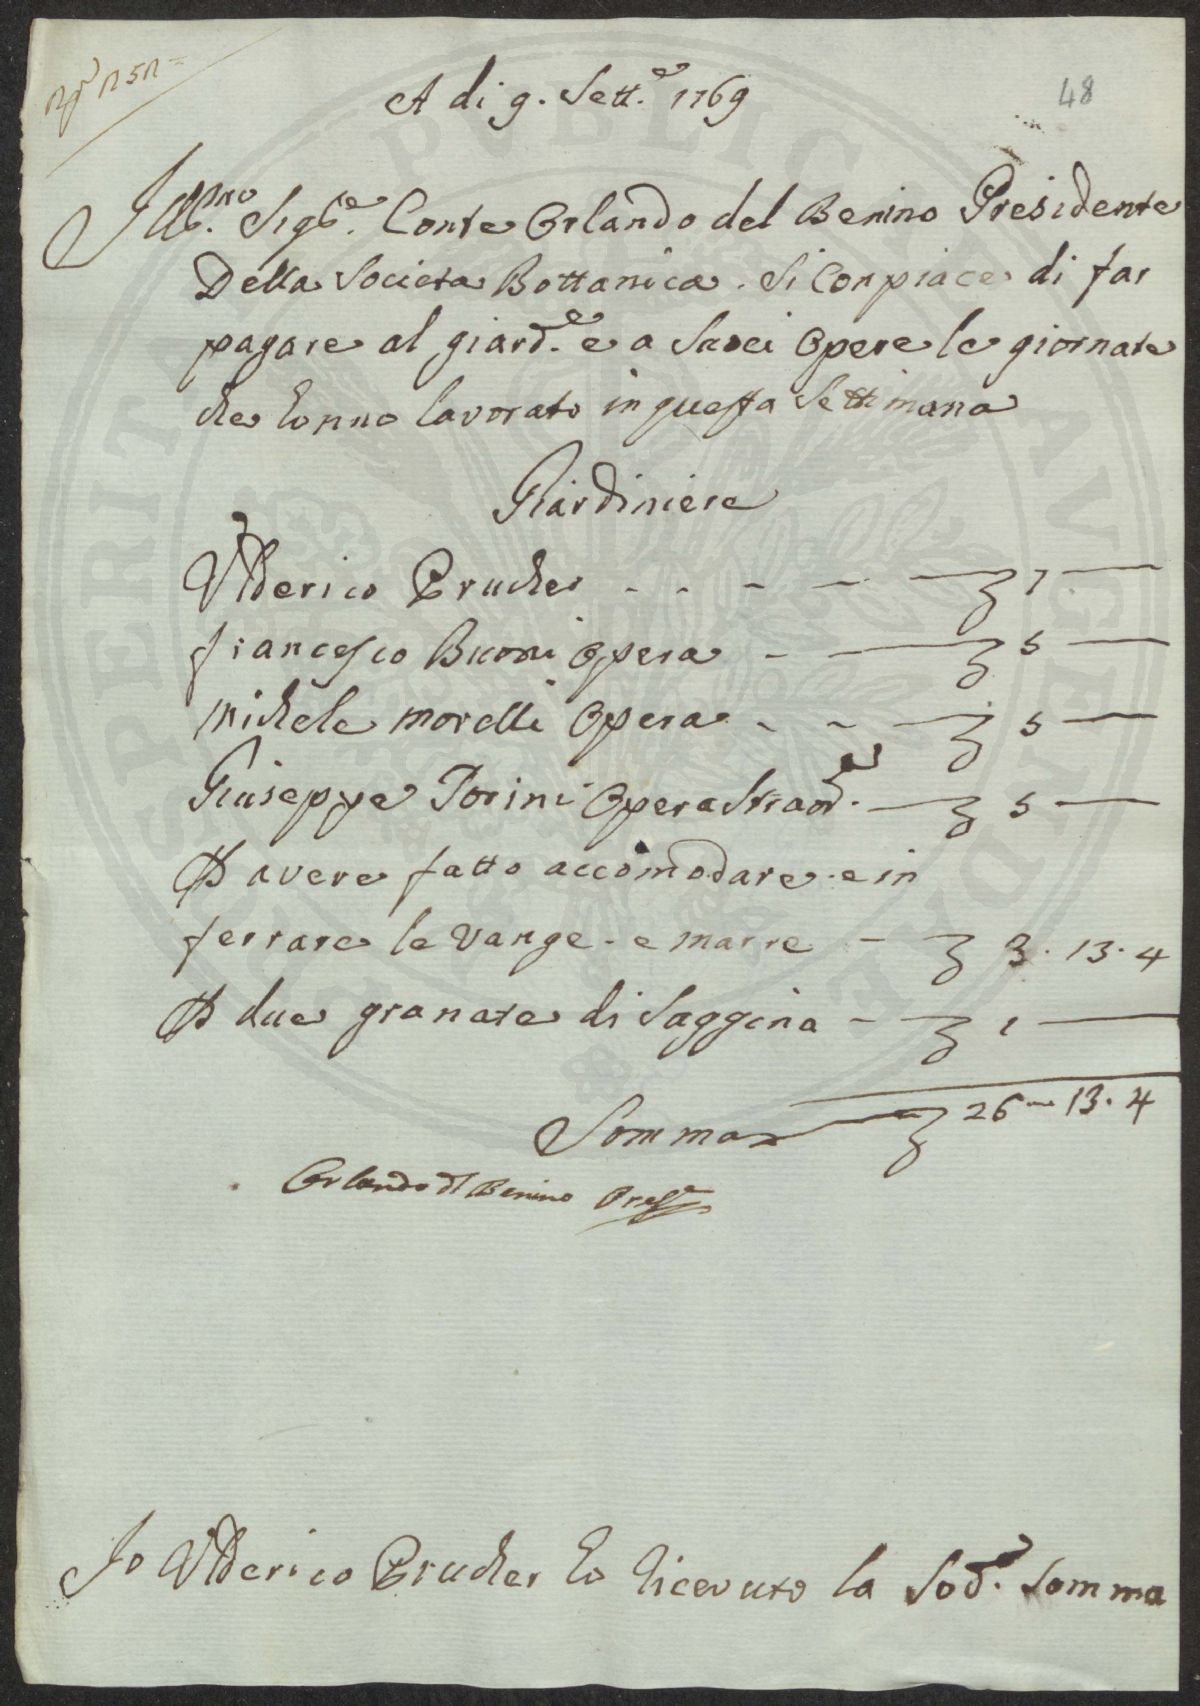 A di 9. Sett.e 1769
48
Ill.mo Sigr.e Conte Orlando del Benino Presidente
Della Societa Bottanica. Si Conpiace di far
pagare al giard.e e a Suoi Opere le giornate
che hanno lavorato in questa Settimana
Giardiniere
Ulderico Prucher - - - - £ 7 —
francesco Buoni Opera - — £ 5 —
Michele morelli Opera - - - £ 5 —
Giuseppe Torini Opera Straord. — £ 5 —
P avere fatto accomodare e in
ferrare le vange - e marre - £ 3. 13. 4
P due granate di Saggina - £ 1 —
Somma — £ 26 - 13. 4
Orlando del Benino Pres.e
Io Ulderico Prucher ho Ricevuto la Sod.a Somma